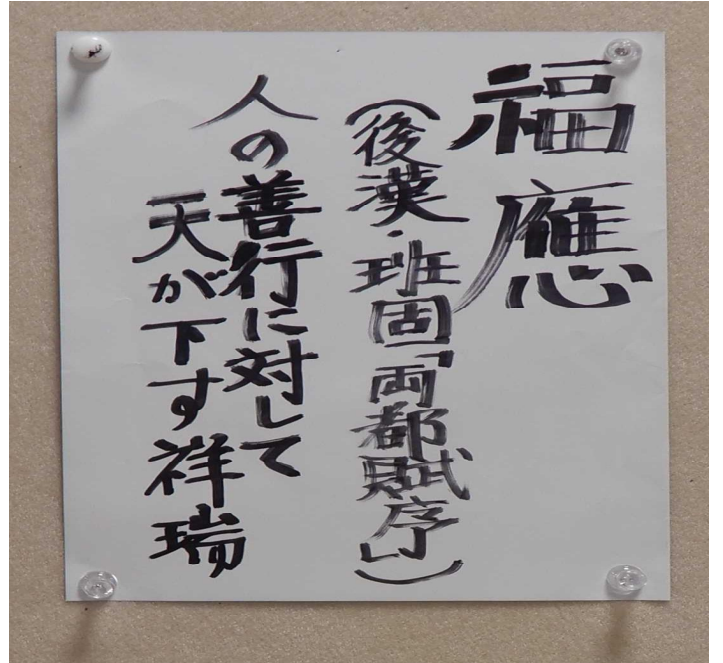 福應
(後漢・班固「両都賦序」)
人の善行に対して
天が下す祥瑞